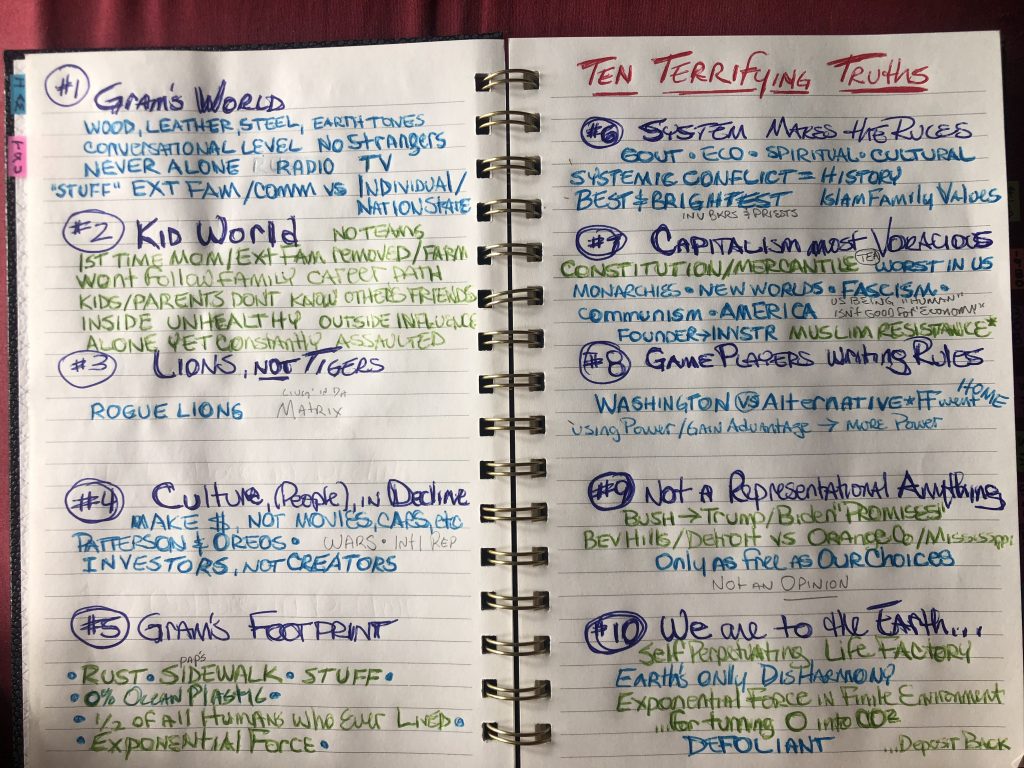 #1 Gram's World
Wood, Leather, Steel, Earthtones
Conversational Level No Strangers
Never Alone Radio TV
"Stuff" Ext Fam/Comm vs Individual/
Nation State
#2 Kid World No Teams
1st Time Mom/Ext Fam removed/Farm
Wont Follow Family Career Path
Kids/Parents Dont Know Others Friends
Inside Unhealthy Outside Influence
Alone Yet Constantly Assaulted
#3 Lions, not Tigers
Livin' in Da
Rogue Lions Matrix
#4 Culture, (People), in Decline
Make $, Not Movies, Cars, etc
Patterson & Oreos • Wars • Intl Rep
Investors, Not Creators
#5 Gram's Footprint
Pap's
• Rust • Sidewalk • Stuff •
• 0% Ocean Plastic •
• 1/2 of All Humans Who Ever Lived •
• Exponential Force •
Ten Terrifying Truths
#6 System Makes the Rules
Gout • Eco • Spiritual • Cultural
Systemic Conflict = History
Best & Brightest Islam Family Values
Inv Bkrs & Priests
#7 Capitalism most Voracious
Constitution/Mercantile (Tea) Worst in US
Monarchies • New Worlds • Fascism •
us being "human"
Communism • America isn't good for "economy"
Founder→Invstr Muslim Resistance*
#8 Game Players Writing Rules
Washington vs Alternative * FF went Home
using Power/Gain Advantage → More Power
#9 Not a Representational Anything
Bush → Trump/Biden "Promises!
Bev Hills/Detroit vs Orange Co/Mississippi
Only as Free as Our Choices
Not an Opinion
#10 We are to the Earth...
Self Perpetuating Life Factory
Earth's Only Disharmony
Exponential Force in Finite Environment
...for turning O into CO2
Defoliant ...Deposit Back